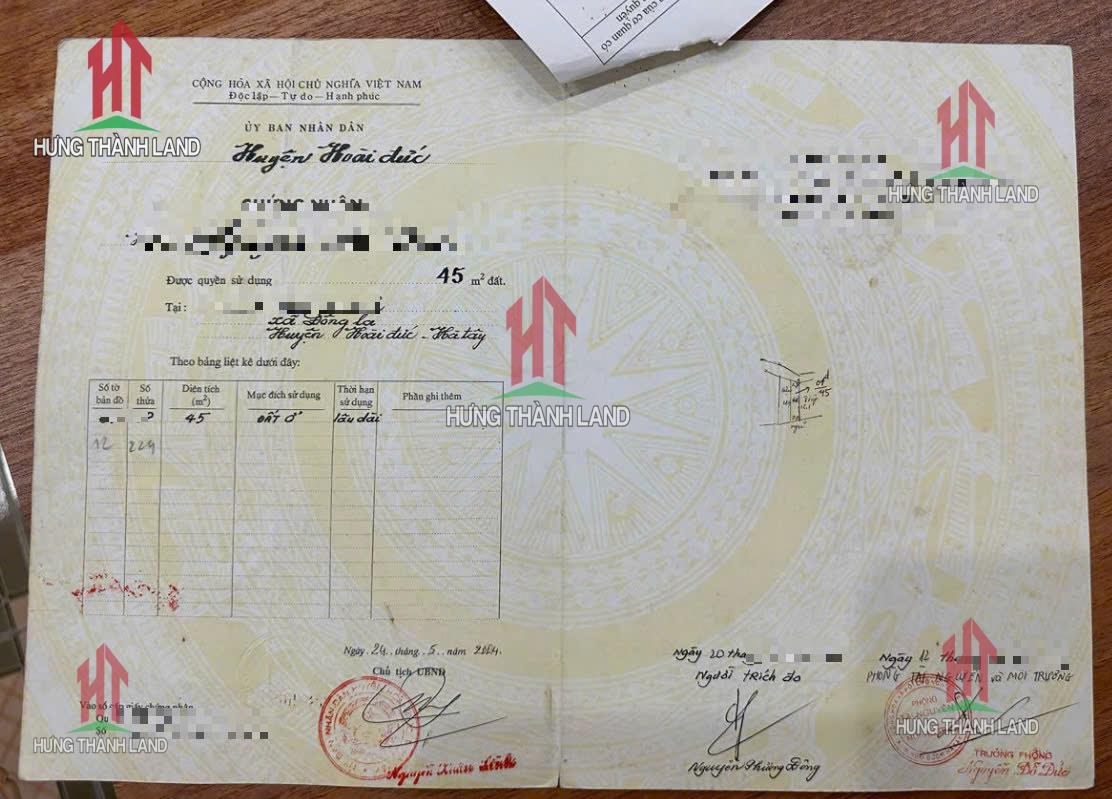 của cơ quan có
quyền
HT
HƯNG THÀNH LAND
CỘNG HÒA XÃ HỘI CHỦ NGHĨA VIỆT NAM
Độc lập - Tự do - Hạnh phúc
ỦY BAN NHÂN DÂN
Huyện Hoài đức
CHỨNG NHẬN
Được quyền sử dụng 45 m² đất.
Tại:
xã Đông la
Huyện Hoài đức - Hà tây
Theo bảng liệt kê dưới đây:
Số tờ bản đồ Số thửa Diện tích (m²) Mục đích sử dụng Thời hạn sử dụng Phần ghi thêm
45 ĐẤT Ở lâu dài
12 224
Ngày 24 tháng 5 năm 2004
Chủ tịch UBND
Vào sổ cấp giấy chứng nhận
Qu
Số
Nguyễn Xuân Linh
HT
HƯNG THÀNH LAND
HT
HƯNG THÀNH LAND
HT
HƯNG THÀNH LAND
45
ngõ
Ngày 20 thá
Người trích đo
Nguyễn Phương Đông
Ngày 12 thá
PHÒNG TÀI NGUYÊN và MÔI TRƯỜNG
TRƯỞNG PHÒNG
Nguyễn Đỗ Đức
HT
HƯNG THÀNH LAND